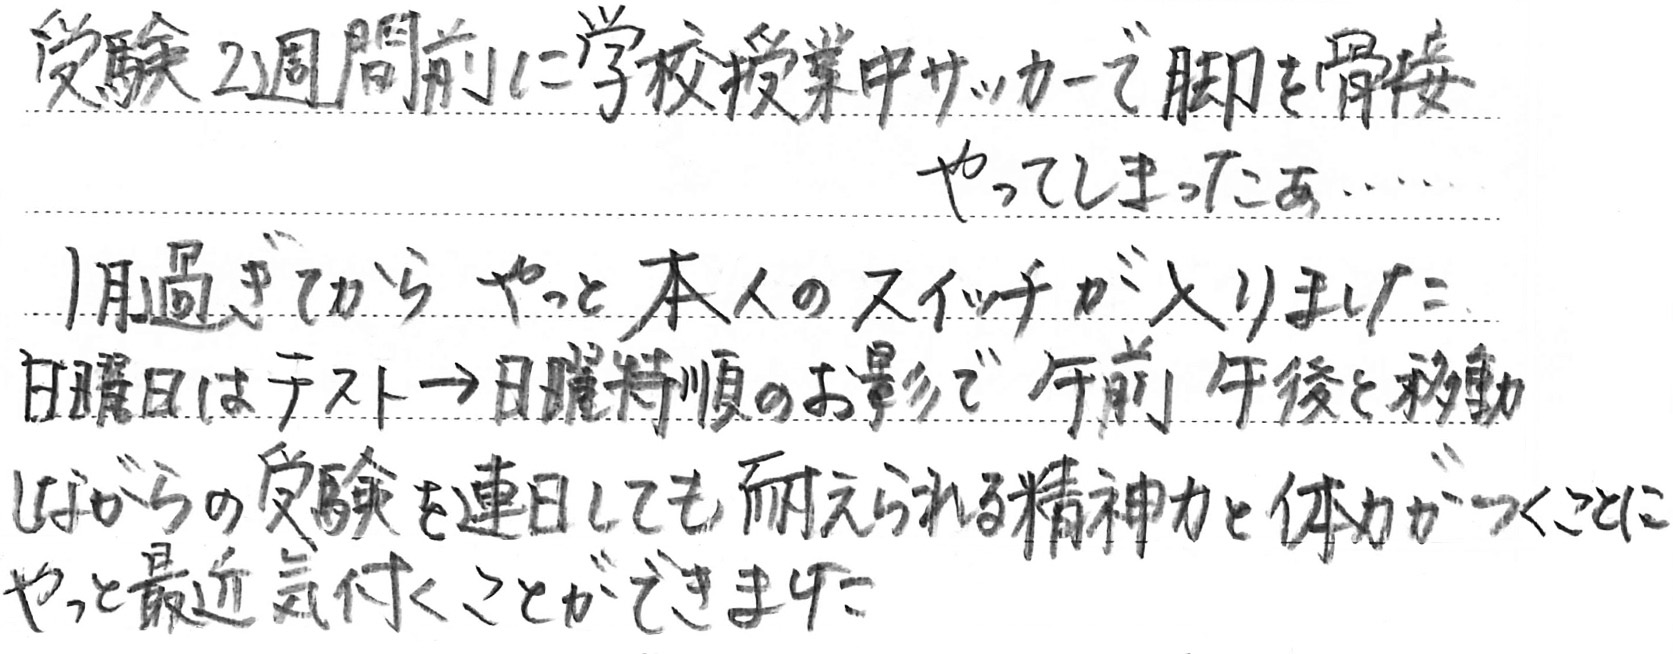 受験2週間前に学校授業中サッカーで脚を骨接
やってしまったあ……
1月過ぎてから やっと本人のスイッチが入りました
日曜日はテスト→日曜特順のお影で 午前 午後と移動
しながらの受験を連日しても耐えられる精神力と体力がつくことに
やっと最近気付くことができました